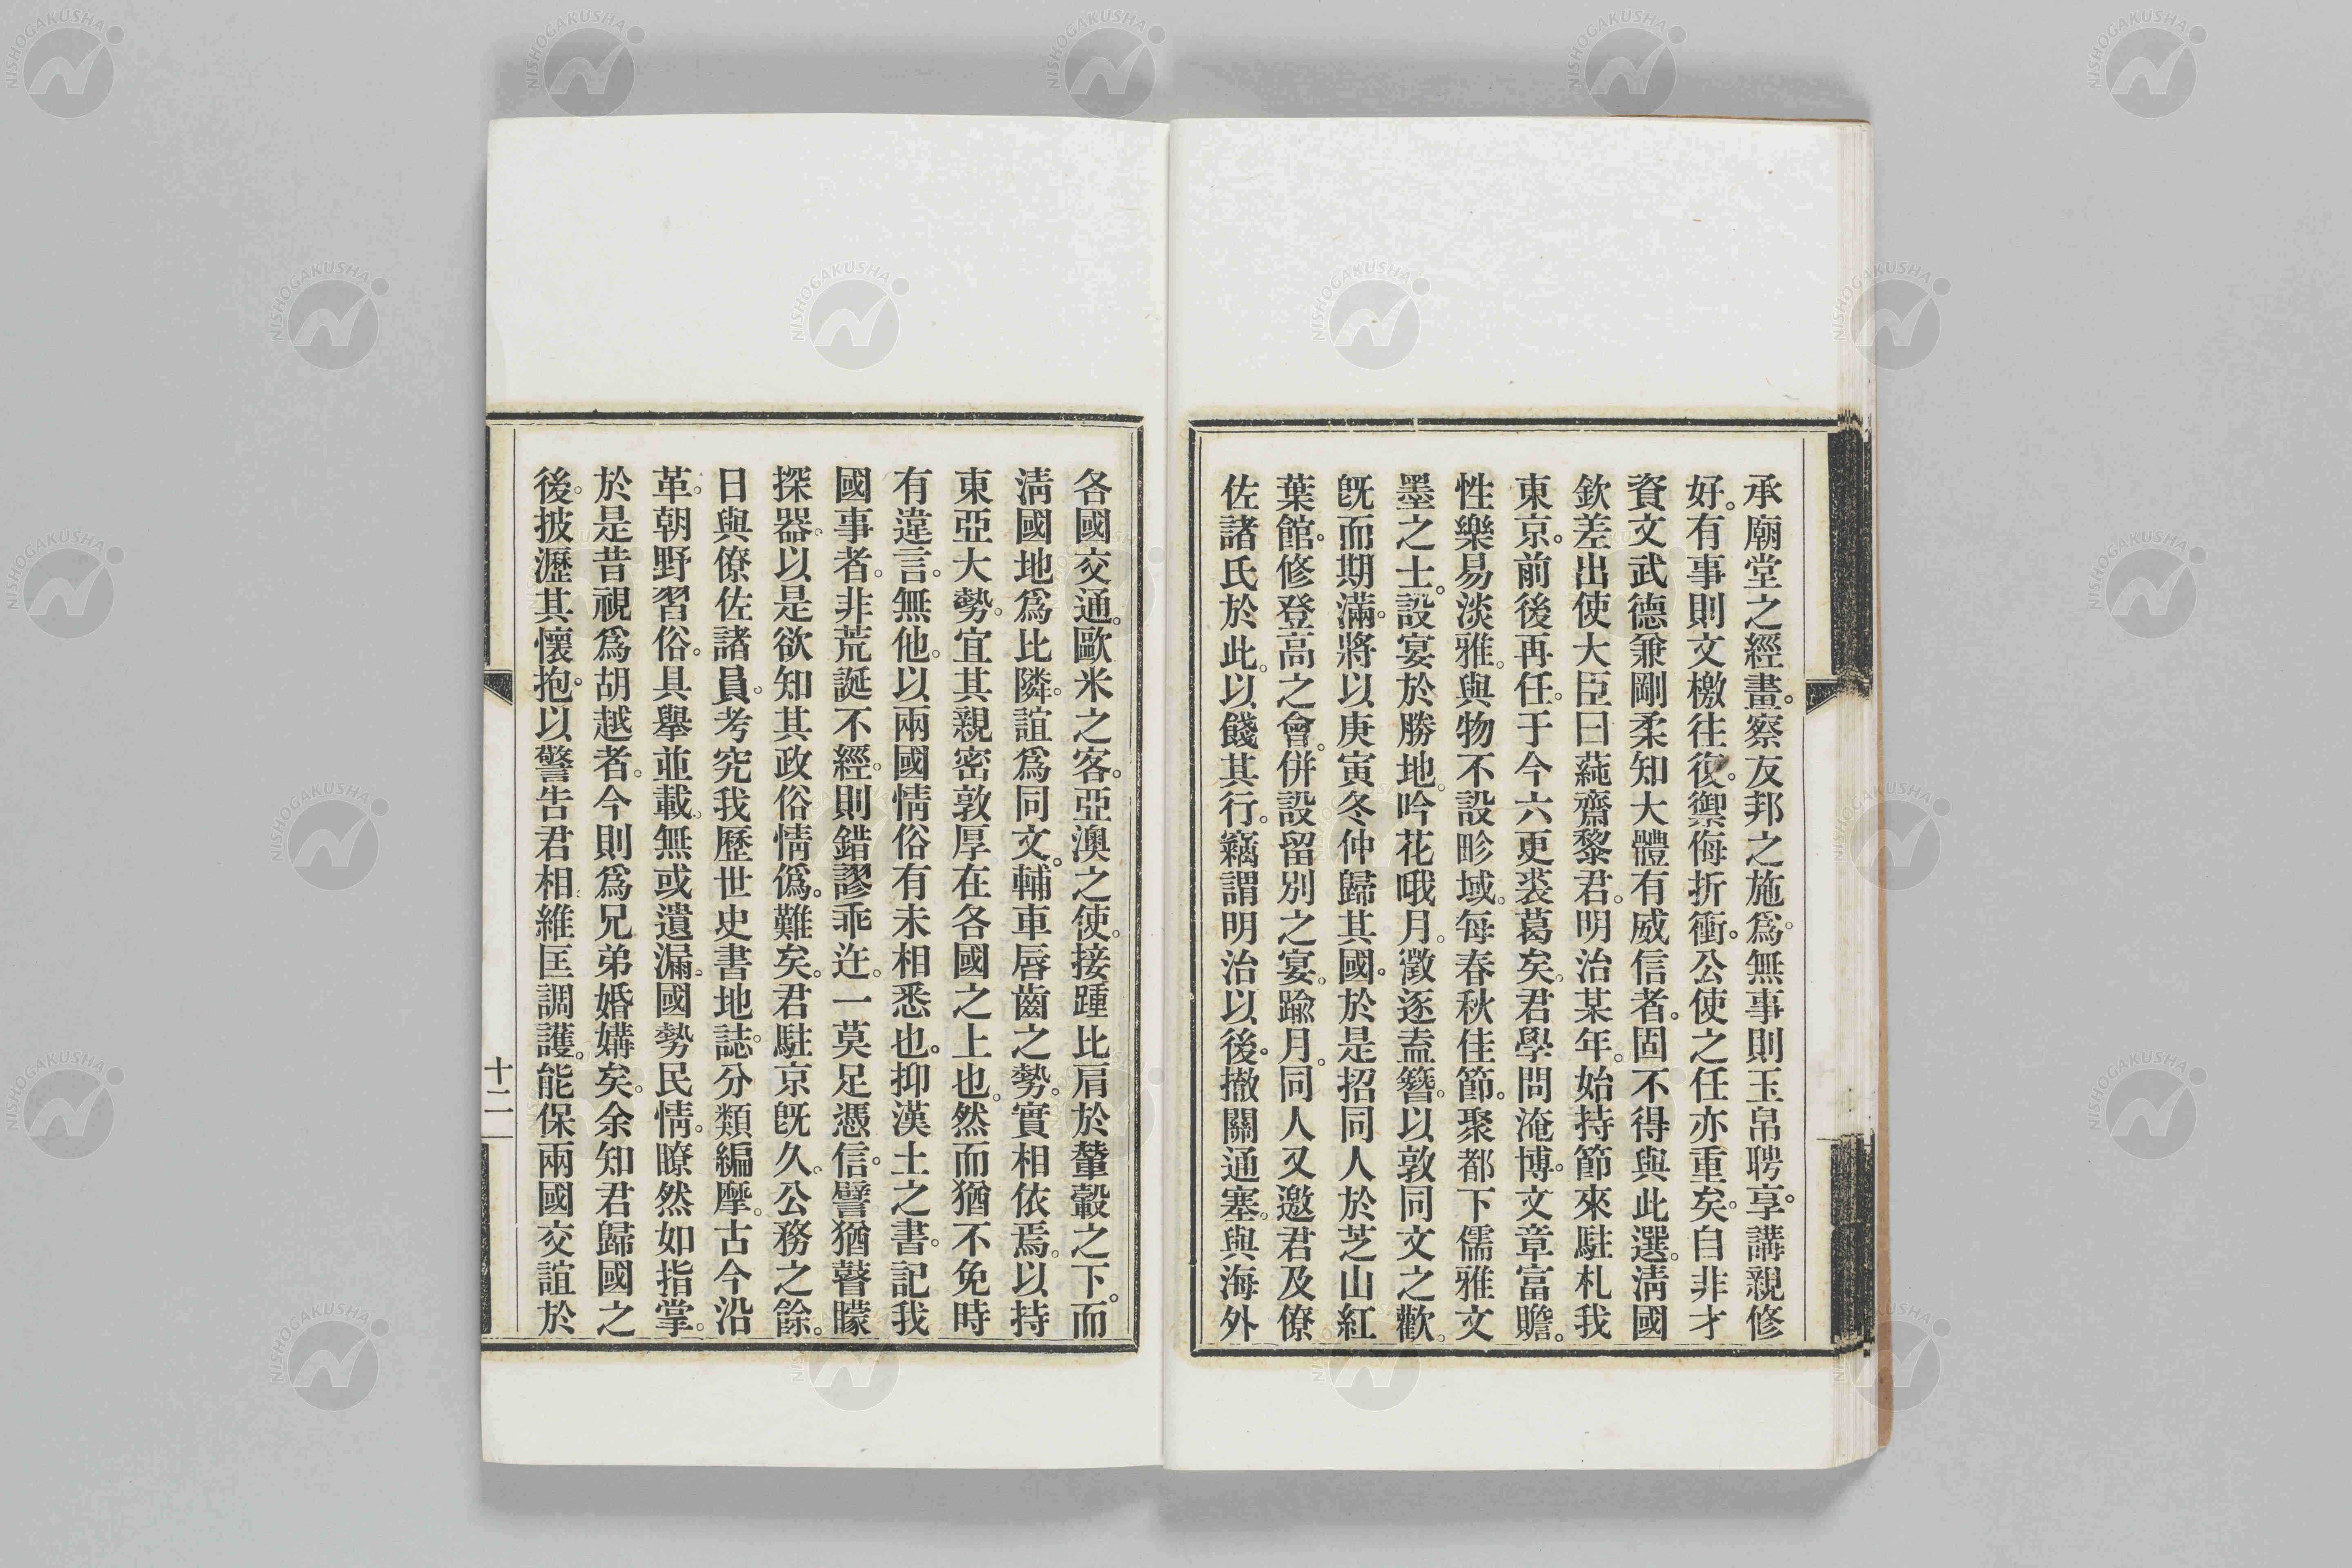 承廟堂之經畫。察友邦之施爲。無事則玉帛聘享。講親修
好。有事則文檄往復。禦侮折衝。公使之任亦重矣。自非才
資文武德兼剛柔知大體有威信者。固不得與此選。淸國
欽差出使大臣曰蒓齋黎君。明治某年。始持節來駐札我
東京。前後再任。于今六更裘葛矣。君學問淹博。文章富贍。
性樂易淡雅。與物不設畛域。每春秋佳節。聚都下儒雅文
墨之士。設宴於勝地。吟花哦月。徵逐盍簪。以敦同文之歡。
旣而期滿。將以庚寅冬仲歸其國。於是招同人於芝山紅
葉館。修登高之會。併設留別之宴。踰月。同人又邀君及僚
佐諸氏於此。以餞其行。竊謂明治以後。撤關通塞。與海外
各國交通。歐米之客。亞澳之使。接踵比肩於輦轂之下。而
淸國地爲比隣。誼爲同文。輔車唇齒之勢。實相依焉。以持
東亞大勢。宜其親密敦厚在各國之上也。然而猶不免時
有違言。無他。以兩國情俗有未相悉也。抑漢土之書。記我
國事者。非荒誕不經。則錯謬乖迕。一莫足憑信。譬猶瞽矇
探器。以是欲知其政俗情僞。難矣。君駐京旣久。公務之餘。
日與僚佐諸員。考究我歷世史書地誌。分類編摩。古今沿
革。朝野習俗。具擧並載。無或遺漏。國勢民情。瞭然如指掌。
於是昔視爲胡越者。今則爲兄弟婚媾矣。余知君歸國之
後。披瀝其懷抱。以警告君相。維匡調護。能保兩國交誼於
十二
NISHOGAKUSHA